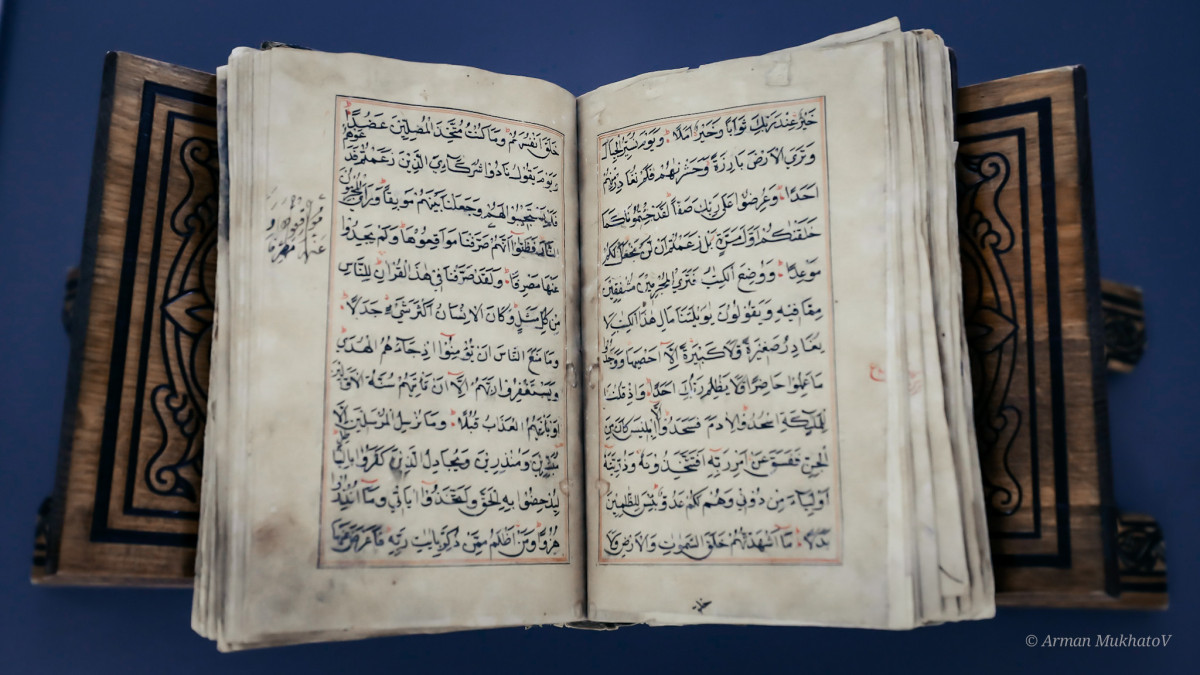 خَيْرٌ عِنْدَ رَبِّكَ ثَوَابًا وَخَيْرٌ اَمَلًا وَيَوْمَ نُسَيِّرُ الْجِبَالَ
وَتَرَى الْاَرْضَ بَارِزَةً وَحَشَرْنٰهُمْ فَلَمْ نُغَادِرْ مِنْهُمْ
اَحَدًا وَعُرِضُوا عَلٰى رَبِّكَ صَفًّا لَقَدْ جِئْتُمُونَا كَمَا
خَلَقْنٰكُمْ اَوَّلَ مَرَّةٍ بَلْ زَعَمْتُمْ اَنْ لَنْ نَجْعَلَ لَكُمْ
مَوْعِدًا وَوُضِعَ الْكِتٰبُ فَتَرَى الْمُجْرِمِينَ مُشْفِقِينَ
مِمَّا فِيهِ وَيَقُولُونَ يٰوَيْلَتَنَا مَالِ هٰذَا الْكِتٰبِ لَا
يُغَادِرُ صَغِيرَةً وَلَا كَبِيرَةً اِلَّا اَحْصٰيهَا وَوَجَدُوا
مَا عَمِلُوا حَاضِرًا وَلَا يَظْلِمُ رَبُّكَ اَحَدًا وَاِذْ قُلْنَا
لِلْمَلٰئِكَةِ اسْجُدُوا لِاٰدَمَ فَسَجَدُوا اِلَّا اِبْلِيسَ كَانَ مِنَ
الْجِنِّ فَفَسَقَ عَنْ اَمْرِ رَبِّهِ اَفَتَتَّخِذُونَهُ وَذُرِّيَّتَهُ
اَوْلِيَاءَ مِنْ دُونِي وَهُمْ لَكُمْ عَدُوٌّ بِئْسَ لِلظّٰلِمِينَ
بَدَلًا مَا اَشْهَدْتُهُمْ خَلْقَ السَّمٰوٰتِ وَالْاَرْضِ وَلَا
خَلْقَ اَنْفُسِهِمْ وَمَا كُنْتُ مُتَّخِذَ الْمُضِلِّينَ عَضُدًا
وَيَوْمَ يَقُولُ نَادُوا شُرَكَاءِيَ الَّذِينَ زَعَمْتُمْ فَدَعَوْهُمْ
فَلَمْ يَسْتَجِيبُوا لَهُمْ وَجَعَلْنَا بَيْنَهُمْ مَوْبِقًا وَرَاَ الْمُجْرِمُونَ
النَّارَ فَظَنُّوا اَنَّهُمْ مُوَاقِعُوهَا وَلَمْ يَجِدُوا
عَنْهَا مَصْرِفًا وَلَقَدْ صَرَّفْنَا فِي هٰذَا الْقُرْاٰنِ لِلنَّاسِ
مِنْ كُلِّ مَثَلٍ وَكَانَ الْاِنْسَانُ اَكْثَرَ شَيْءٍ جَدَلًا
وَمَا مَنَعَ النَّاسَ اَنْ يُؤْمِنُوا اِذْ جَاءَهُمُ الْهُدٰى
وَيَسْتَغْفِرُوا رَبَّهُمْ اِلَّا اَنْ تَأْتِيَهُمْ سُنَّةُ الْاَوَّلِينَ
اَوْ يَأْتِيَهُمُ الْعَذَابُ قُبُلًا وَمَا نُرْسِلُ الْمُرْسَلِينَ اِلَّا
مُبَشِّرِينَ وَمُنْذِرِينَ وَيُجَادِلُ الَّذِينَ كَفَرُوا بِالْبَاطِلِ
لِيُدْحِضُوا بِهِ الْحَقَّ وَاتَّخَذُوا اٰيَاتِي وَمَا اُنْذِرُوا
هُزُوًا وَمَنْ اَظْلَمُ مِمَّنْ ذُكِّرَ بِاٰيٰتِ رَبِّهِ فَاَعْرَضَ عَنْهَا
© Arman MukhatoV